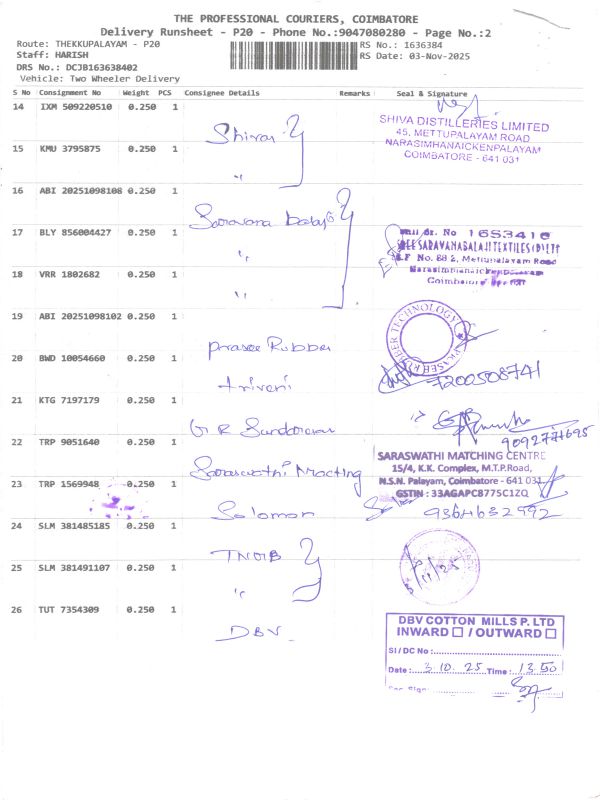 THE PROFESSIONAL COURIERS, COIMBATORE
Delivery Runsheet - P20 - Phone No.:9047080280 - Page No.:2
Route: THEKKUPALAYAM - P20
RS No.: 1636384
Staff: HARISH
RS Date: 03-Nov-2025
DRS No.: DCJB163638402
Vehicle: Two Wheeler Delivery
S No Consignment No Weight PCS Consignee Details Remarks Seal & Signature
14 IXM 509220510 0.250 1
SHIVA DISTILLERIES LIMITED
45, METTUPALAYAM ROAD
NARASIMHANAICKENPALAYAM
COIMBATORE - 641 031
Shiva
15 KMU 3795875 0.250 1
"
16 ABI 20251098108 0.250 1
Saravana Balaji
17 BLY 856004427 0.250 1
No 1653416
SREE SARAVANABALAJI TEXTILES (P) LTD
S.F No. 88 2, Mettupalayam Road
Narasimhanaickenpalayam
Coimbatore
"
18 VRR 1802682 0.250 1
"
19 ABI 20251098102 0.250 1
RUBBER TECHNOLOGY
Rubber
20 BWD 10054660 0.250 1
triveni
7200508741
21 KTG 7197179 0.250 1
G R Sundaram
9092771695
22 TRP 9051640 0.250 1
SARASWATHI MATCHING CENTRE
15/4, K.K. Complex, M.T.P.Road,
N.S.N. Palayam, Coimbatore - 641 031
GSTIN : 33AGAPC8775C1ZQ
Saraswathi
23 TRP 1569948 0.250 1
Solomon
9364632992
24 SLM 381485185 0.250 1
25 SLM 381491107 0.250 1
"
26 TUT 7354309 0.250 1
DBV
DBV COTTON MILLS P. LTD
INWARD / OUTWARD
SI / DC No :
Date : 3.10.25 Time : 13.50